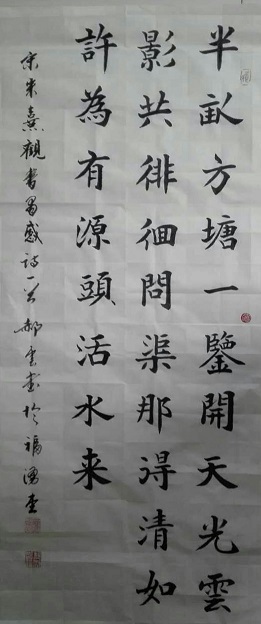 半畝方塘一鑒開天光雲
影共徘徊問渠那得清如
許為有源頭活水来
宋朱熹觀書有感詩一首郝